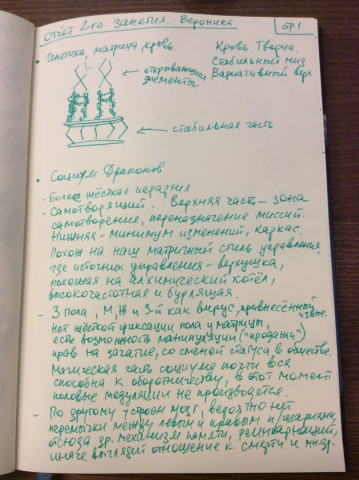 Отчёт 2-го занятия. Вероника
стр 1
• генетика, матрица, кровь.
Кровь Творца.
Стабильный низ
Вариативный верх
открывающиеся
элементы
стабильная часть
• Социум Драконов
- Более жёсткая иерархия
- Самотворящий. Верхняя часть – зона
самотворение, переназначение миссий.
Нижняя – минимум изменений, каркас.
Похож на наш матричный стиль управления
где источник управления – верхушка,
похожая на алхимический котёл,
высокочастотная и бурлящая.
- 3 пола, М, Ж и 3-й как вирус, привнесённый
извне.
Нет жёсткой фиксации пола у матрицы,
есть возможность манипуляции ("продажи")
прав на зачатие, со сменой статуса в обществе.
Магическая часть социума почти вся
способна к оборотничеству, в этот момент
половые медуляции не производятся.
- По другому устроен мозг, вероятно нет
перемычки между левым и правым п/шариями,
отсюда др. механизм памяти, реинкарнаций,
иначе выглядит отношение к смерти и жизн.